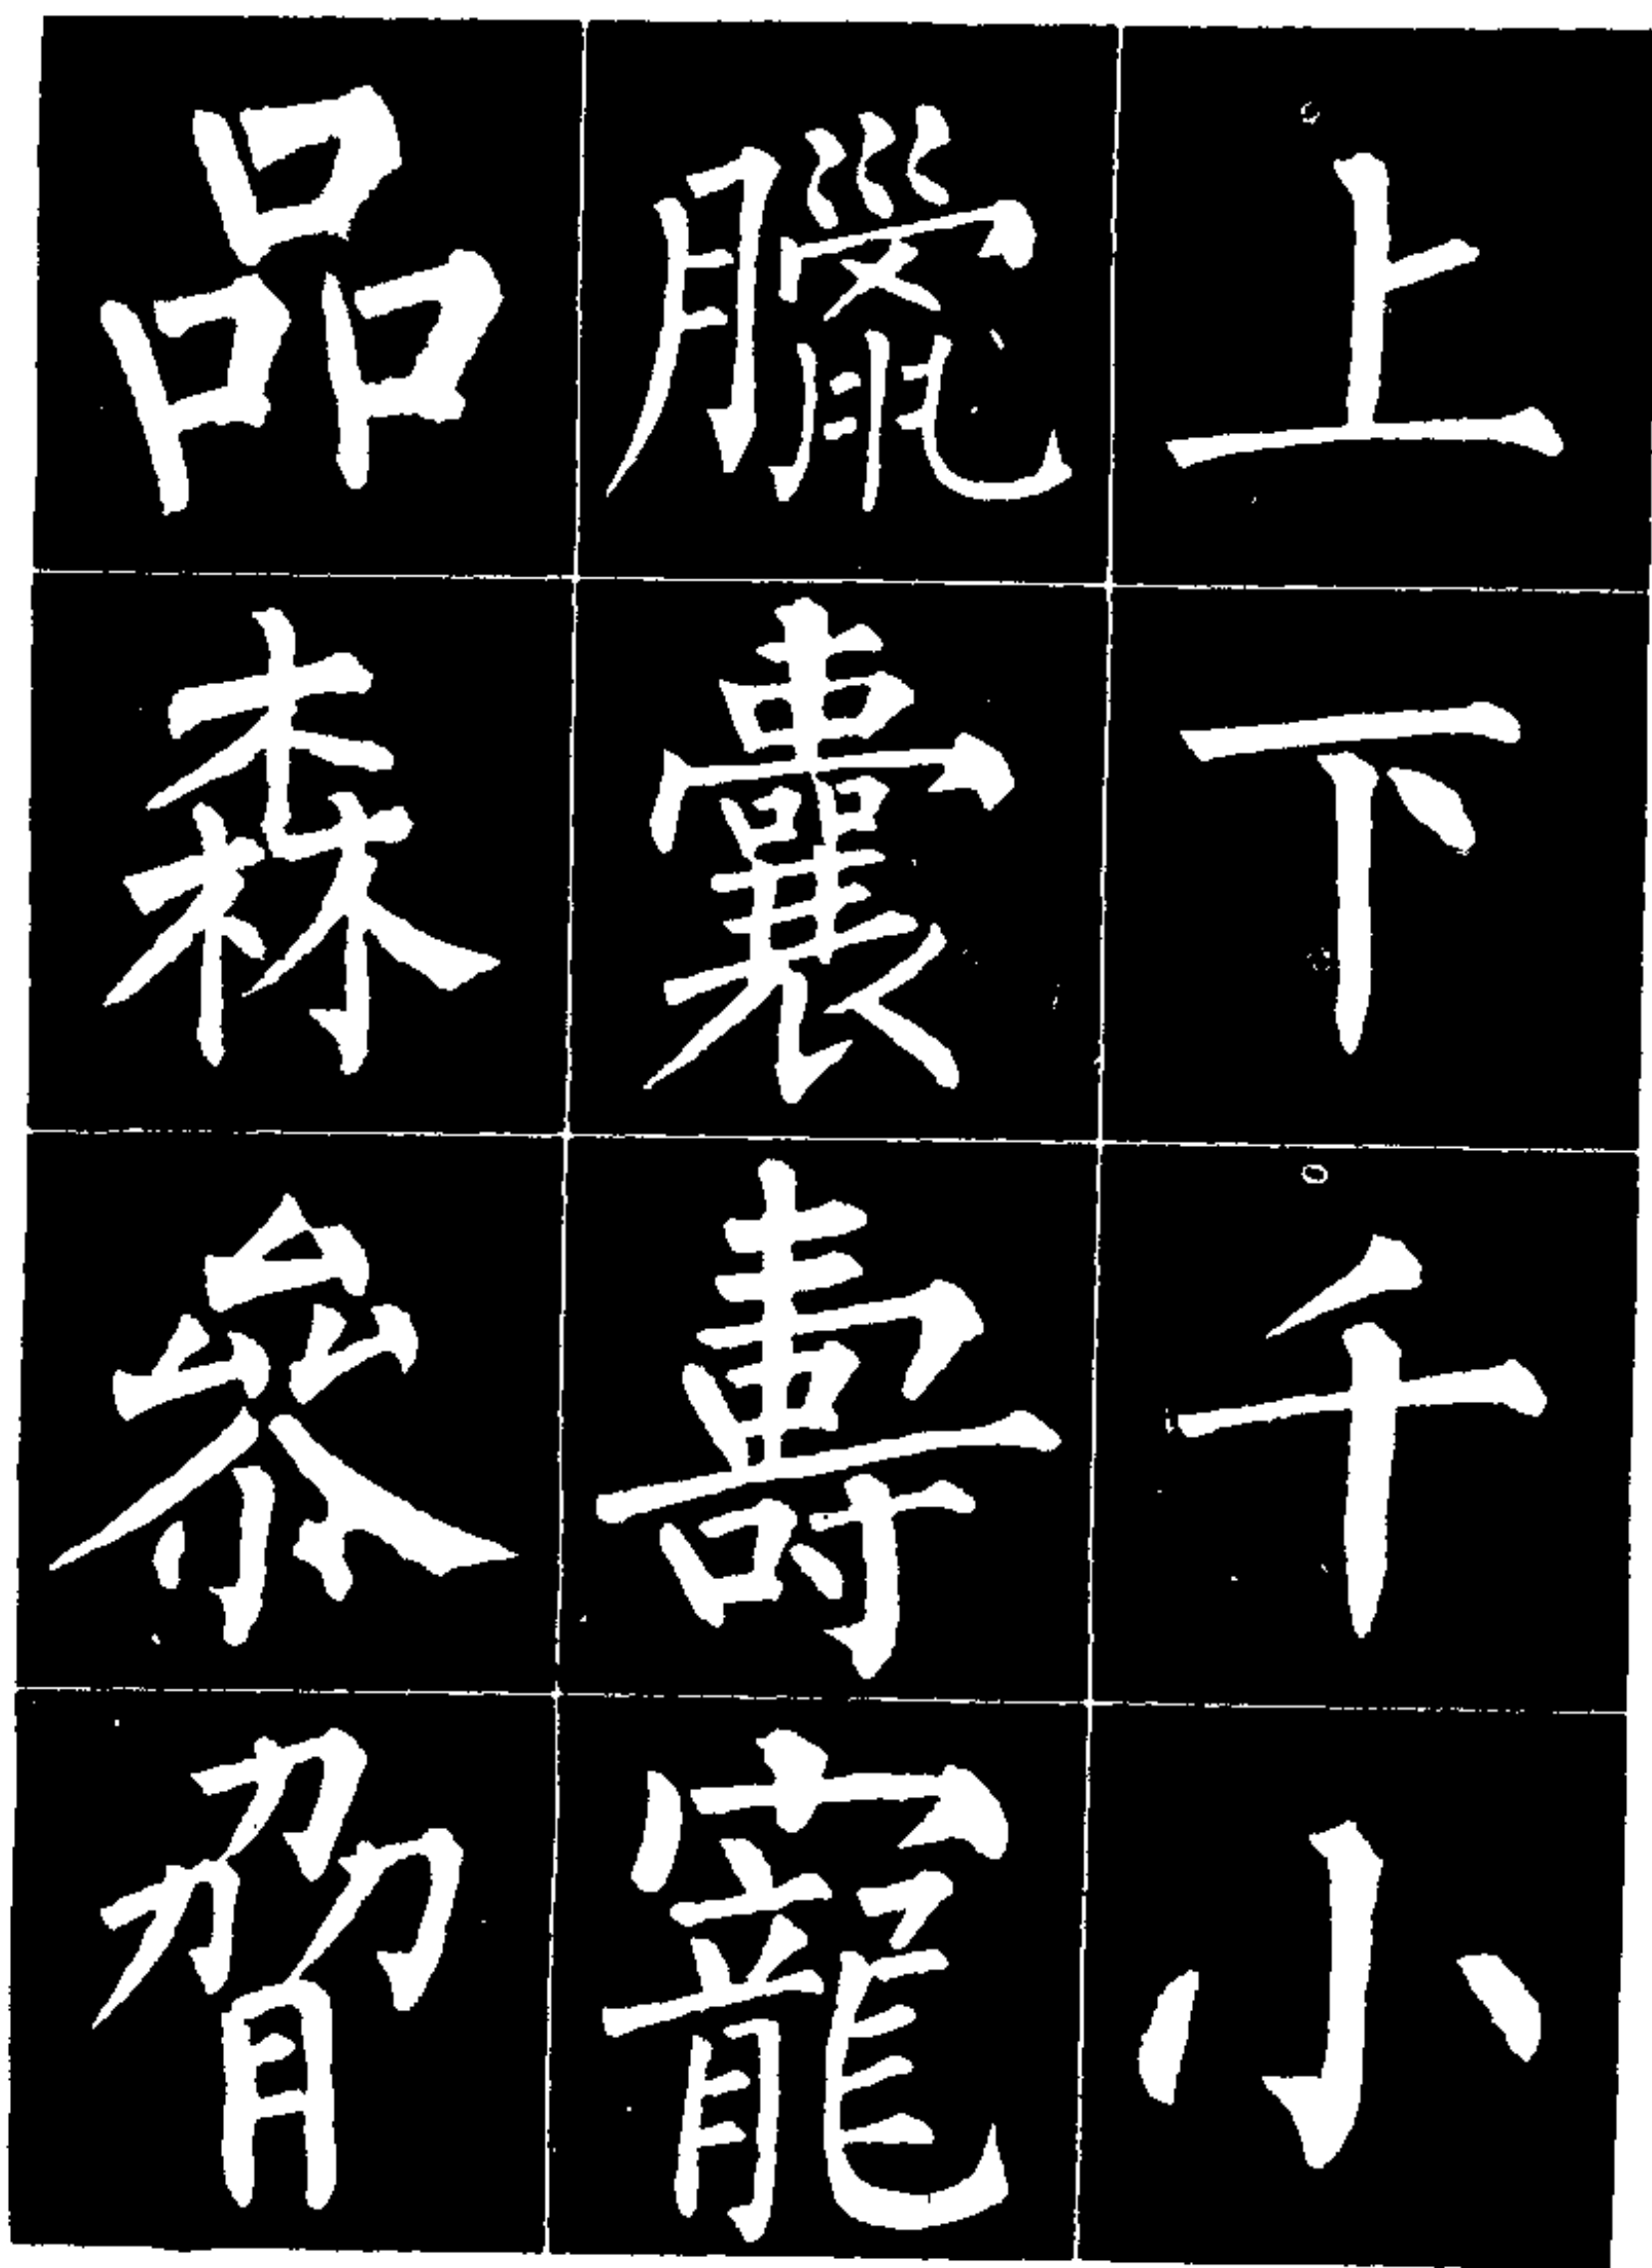 上下千小
臘囊壽寵
品森叅脅